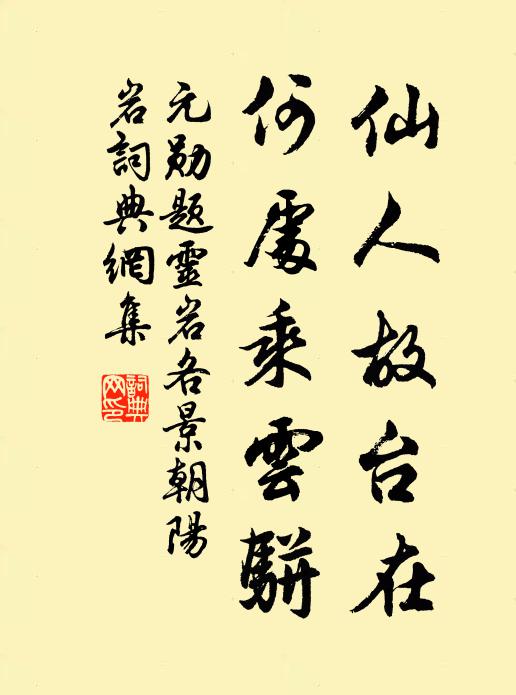 仙人故台在
何處乘雲騈
元勛題靈岩各景朝陽
岩詞典網集
詞典网印